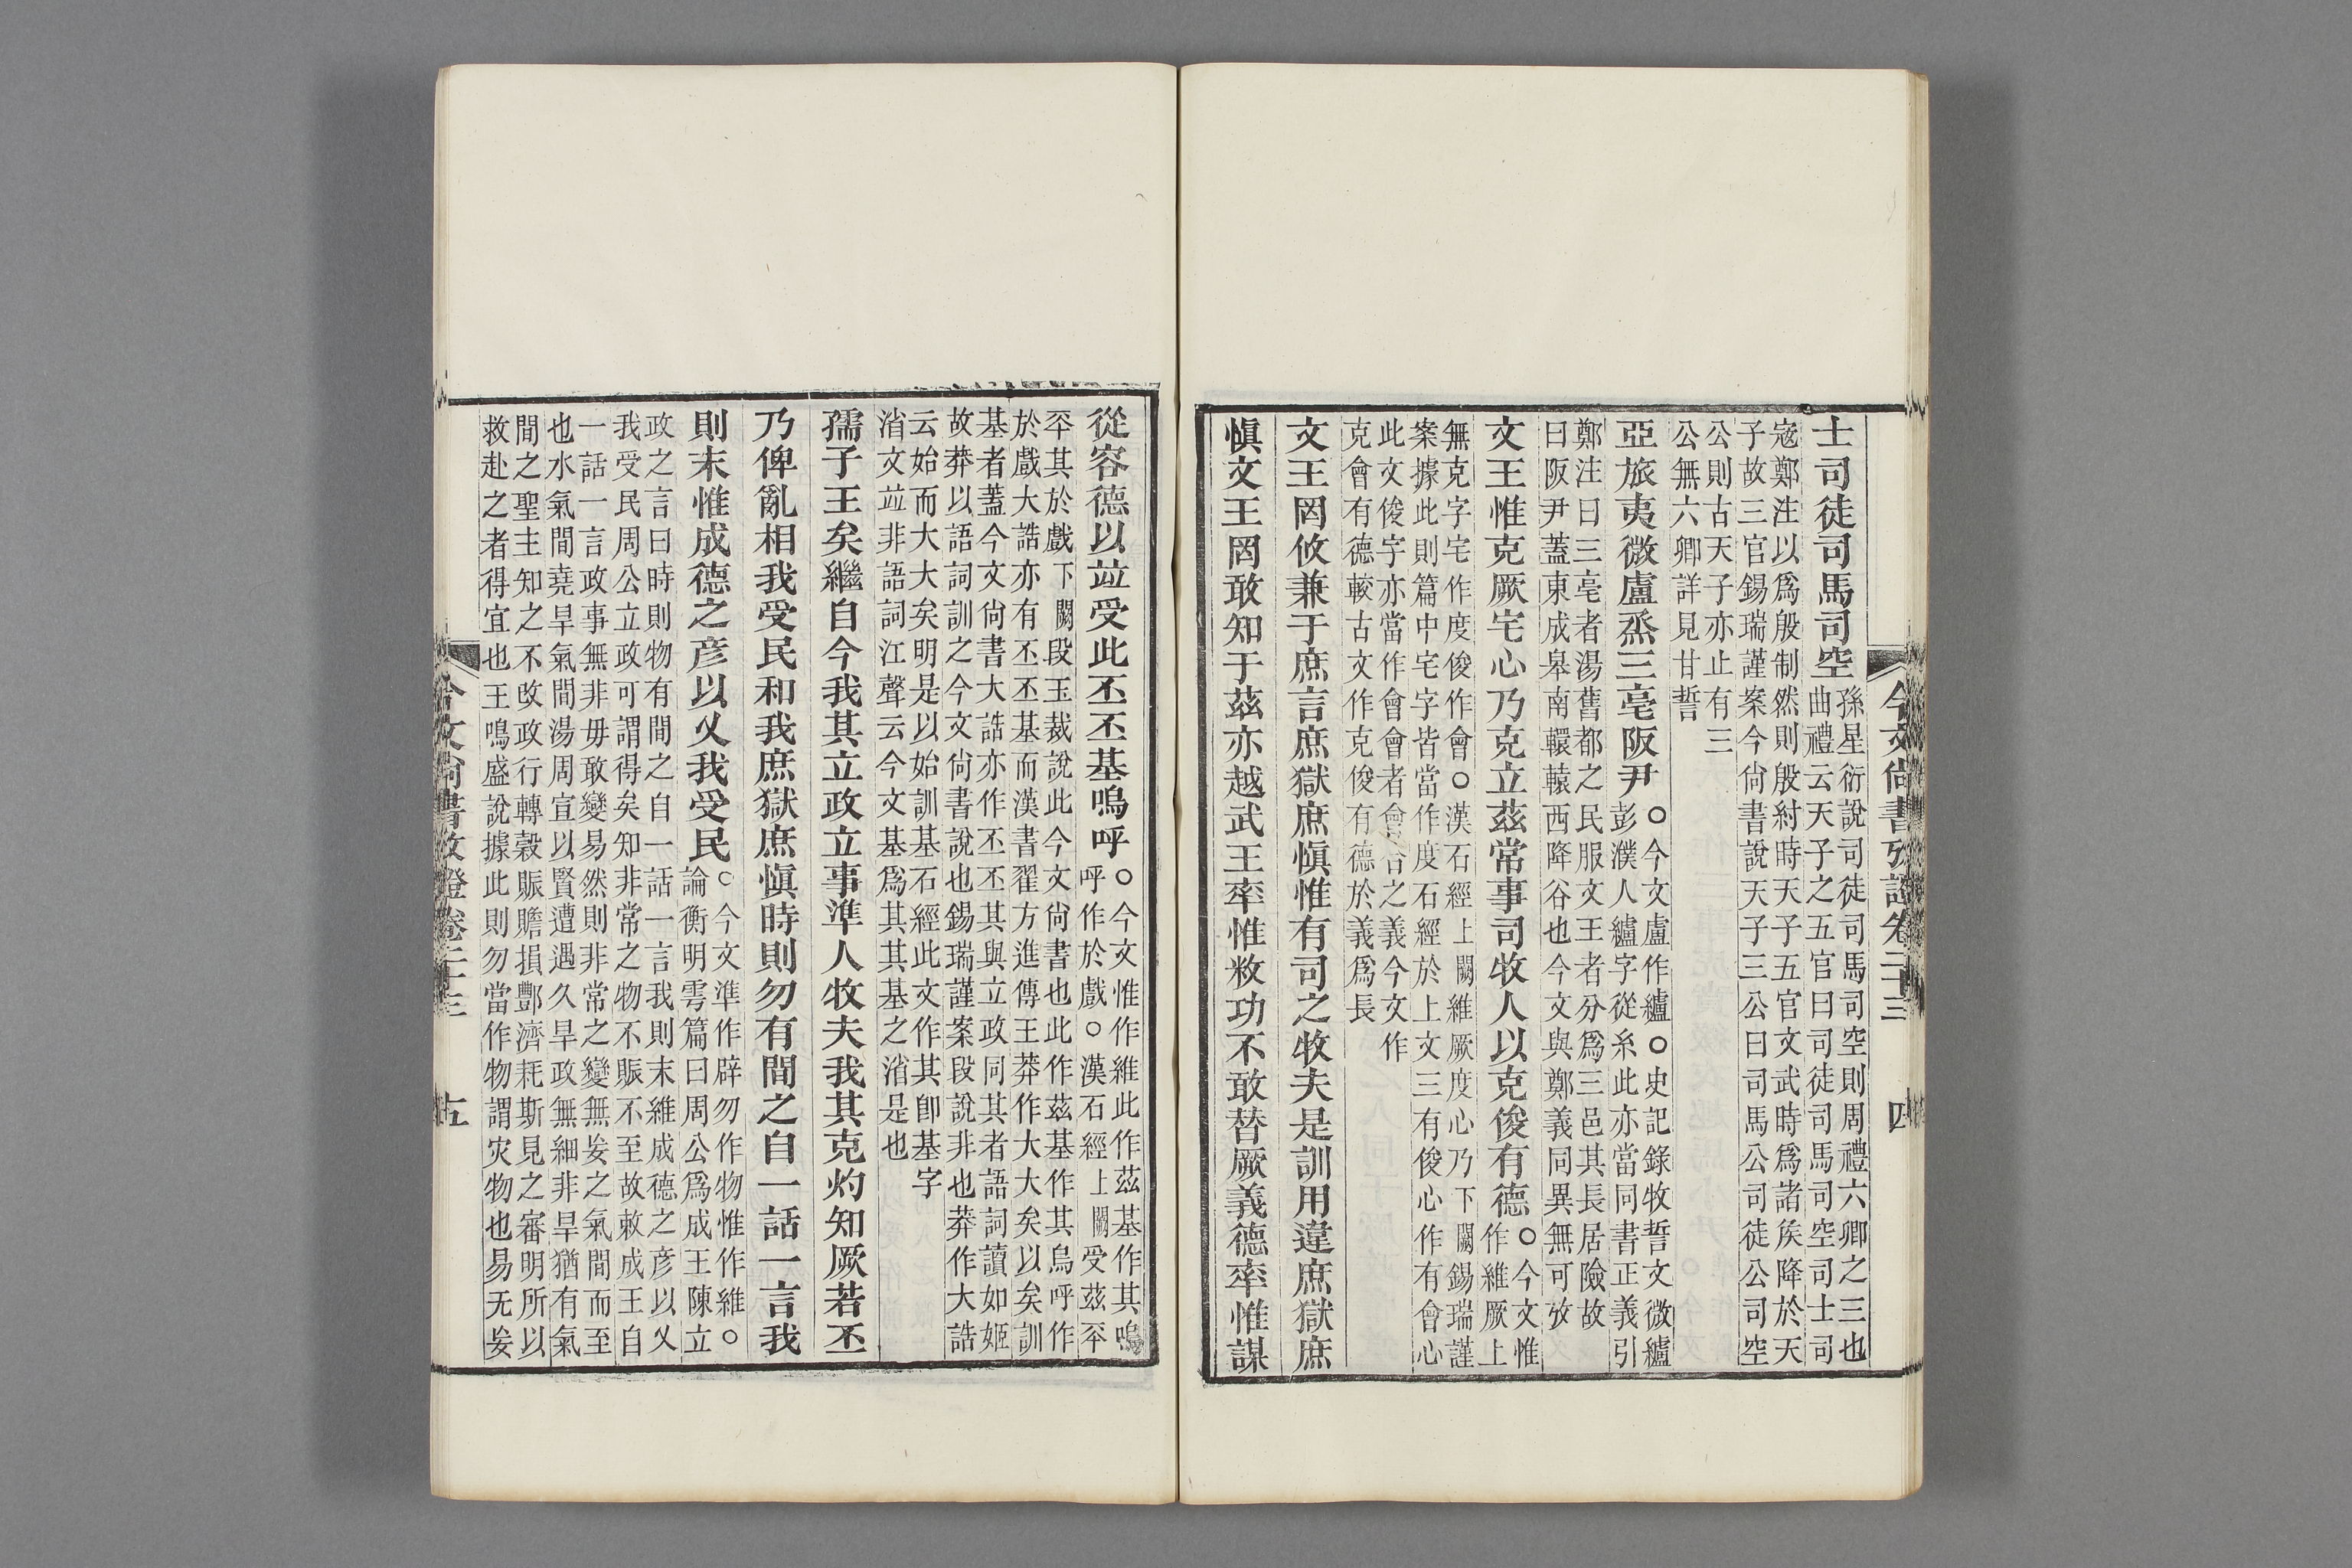 今文尚書攷證卷二十三
四
士司徒司馬司空
孫星衍說司徒司馬司空則周禮六卿之三也
曲禮云天子之五官曰司徒司馬司空司士司
寇鄭注以爲殷制然則殷紂時天子五官文武時爲諸矦降於天
子故三官錫瑞謹案今尙書說天子三公曰司馬公司徒公司空
公則古天子亦止有三
公無六卿詳見甘誓
亞旅夷微盧烝三亳阪尹
○今文盧作纑○史記錄牧誓文微纑
彭濮人纑字從糸此亦當同書正義引
鄭注曰三亳者湯舊都之民服文王者分爲三邑其長居險故
曰阪尹蓋東成皋南轘轅西降谷也今文與鄭義同異無可攷
文王惟克厥宅心乃克立茲常事司牧人以克俊有德
○今文惟
作維厥上
無克字宅作度俊作會○漢石經上闕維厥度心乃下闕錫瑞謹
案據此則篇中宅字皆當作度石經於上文三有俊心作有會心
此文俊字亦當作會會者會合之義今文作
克會有德較古文作克俊有德於義爲長
文王罔攸兼于庶言庶獄庶愼惟有司之牧夫是訓用違庶獄庶
愼文王罔敢知于茲亦越武王率惟敉功不敢替厥義德率惟謀
從容德以竝受此丕丕基嗚呼
○今文惟作維此作茲基作其嗚
呼作於戲○漢石經上闕受茲㔻
㔻其於戲下闕段玉裁說此今文尙書也此作茲基作其烏呼作
於戲大誥亦有丕丕基而漢書翟方進傳王莽作大大矣以矣訓
基者蓋今文尙書大誥亦作丕丕其與立政同其者語詞讀如姬
故莽以語詞訓之今文尙書說也錫瑞謹案段說非也莽作大誥
云始而大大矣明是以始訓基石經此文作其卽基字
消文竝非語詞江聲云今文基爲其其基之消是也
孺子王矣繼自今我其立政立事準人牧夫我其克灼知厥若丕
乃俾亂相我受民和我庶獄庶愼時則勿有閒之自一話一言我
則末惟成德之彥以乂我受民
○今文準作辟勿作物惟作維○
論衡明雩篇曰周公爲成王陳立
政之言曰時則物有閒之自一話一言我則末維成德之彥以乂
我受民周公立政可謂得矣知非常之物不賑不至故敕成王自
一話一言政事無非毋敢變易然則非常之變無妄之氣閒而至
也水氣閒堯旱氣閒湯周宣以賢遭遇久旱政無細非旱猶有氣
閒之聖主知之不改政行轉穀賑贍損酆濟耗斯見之審明所以
救赴之者得宜也王鳴盛說據此則勿當作物謂灾物也易无妄
今文尙書攷證卷二十三
五